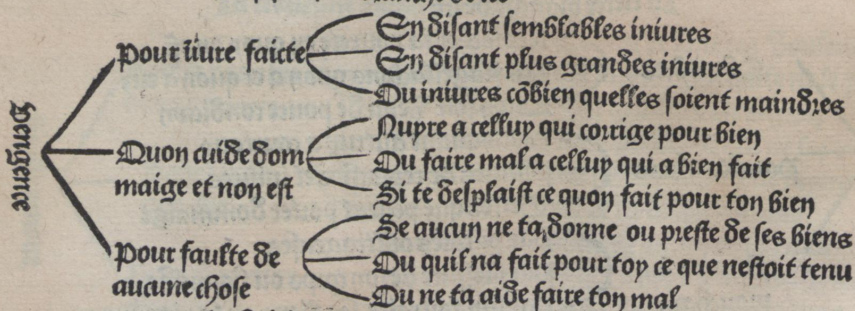 Vengence
Pour iiure faicte
En disant semblables iniures
En disant plus grandes iniures
Ou iniures cõbien quelles soient maindres
Quon cuide dom
maige et non est
Nuyre a celluy qui corrige pour bien
Ou faire mal a celluy qui a bien fait
Si te desplaist ce quon fait pour ton bien
Pour faulte de
aucune chose
Se aucun ne ta donne ou preste de ses biens
Ou quil na fait pour toy ce que nestoit tenu
Ou ne ta aide faire ton mal